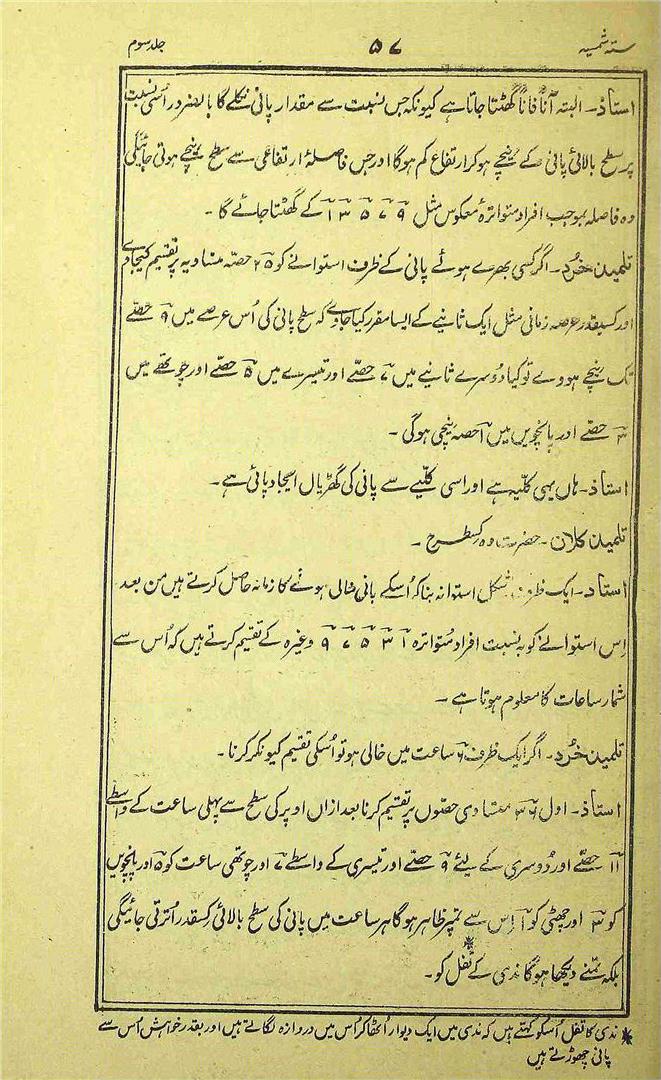 ستہ شمسیہ ۵۷ جلد سوم
استاذ۔ البتہ آناً فاناً گھٹتا جاتا ہے کیونکہ جس نسبت سے مقدار پانی نکلے گا بالضرور اُسی نسبت
پر سطح بالائی پانی کے نیچے ہو کر ارتفاع کم ہوگا اور جس فاصلۂ ارتفاعی سے سطح نیچے ہوتی جائیگی
وہ فاصلہ بموجب افراد متواترۂ معکوس مثل ۹ ۷ ۵ ۳ ۱ کے گھٹتا جائے گا۔
تلمیذ خُرد۔ اگر کسی بھرے ہوئے پانی کے ظرف استوانے کو ۲۵ حصہ متساویہ پر تقسیم کیجاوے
اور کسیقدر عرصہ زمانی مثل ایک ثانیے کے ایسا مقرر کیا جاوے کہ سطح پانی کی اُس عرصے میں ۹ حصّے
تک نیچے ہووے تو کیا دُوسرے ثانیے میں ۷ حصّے اور تیسرے میں ۵ حصّے اور چوتھے میں
۳ حصّے اور پانچویں میں ۱ حصہ نیچی ہوگی۔
استاذ۔ ہاں یہی کلّیہ ہے اور اسی کلّیے سے پانی کی گھڑیال ایجاد پائی ہے۔
تلمیذ کلان۔ حضرت وہ کسطرح۔
استاد۔ ایک ظرف بشکل استوانہ بنا کہ اُسکے پانی خالی ہونے کا زمانہ حاصل کرتے ہیں من بعد
اِس استوانے کو بہ نسبت افراد مُتواترہ ۱ ۳ ۵ ۷ ۹ وغیرہ کے تقسیم کرتے ہیں کہ اُس سے
شمار ساعات کا معلوم ہوتا ہے۔
تلمیذ خُرد۔ اگر ایک ظرف ۶ ساعت میں خالی ہو تو اُسکی تقسیم کیونکر کرنا۔
استاذ۔ اول ۳۶ متساوی حصّوں پر تقسیم کرنا بعد ازاں اوپر کی سطح سے پہلی ساعت کے واسطے
۱۱ حصّے اور دُوسری کے لیئے ۹ حصّے اور تیسری کے واسطے ۷ اور چوتھی ساعت کو ۵ اور پانچویں
کو ۳ اور چھٹی کو ۱ اِس سے تمپر ظاہر ہوگا ہر ساعت میں پانی کی سطح بالائی کسقدر اُترتی جائیگی
بلکہ تمنے دیکھا ہوگا ندی کے * تفل کو۔
* ندی کا تفل اُسکو کہتے ہیں کہ ندی میں ایک دیوار اُٹھا کر اُس میں دروازہ لگاتے ہیں اور بقدر خواہش اُس سے
پانی چھوڑتے ہیں